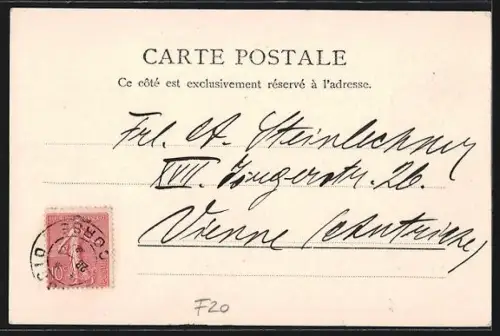 CARTE POSTALE
Ce côté est exclusivement réservé à l'adresse.
Frl. A. Steinlechner
XVII. 26.
Vienne (Autriche)
CORSE
F20